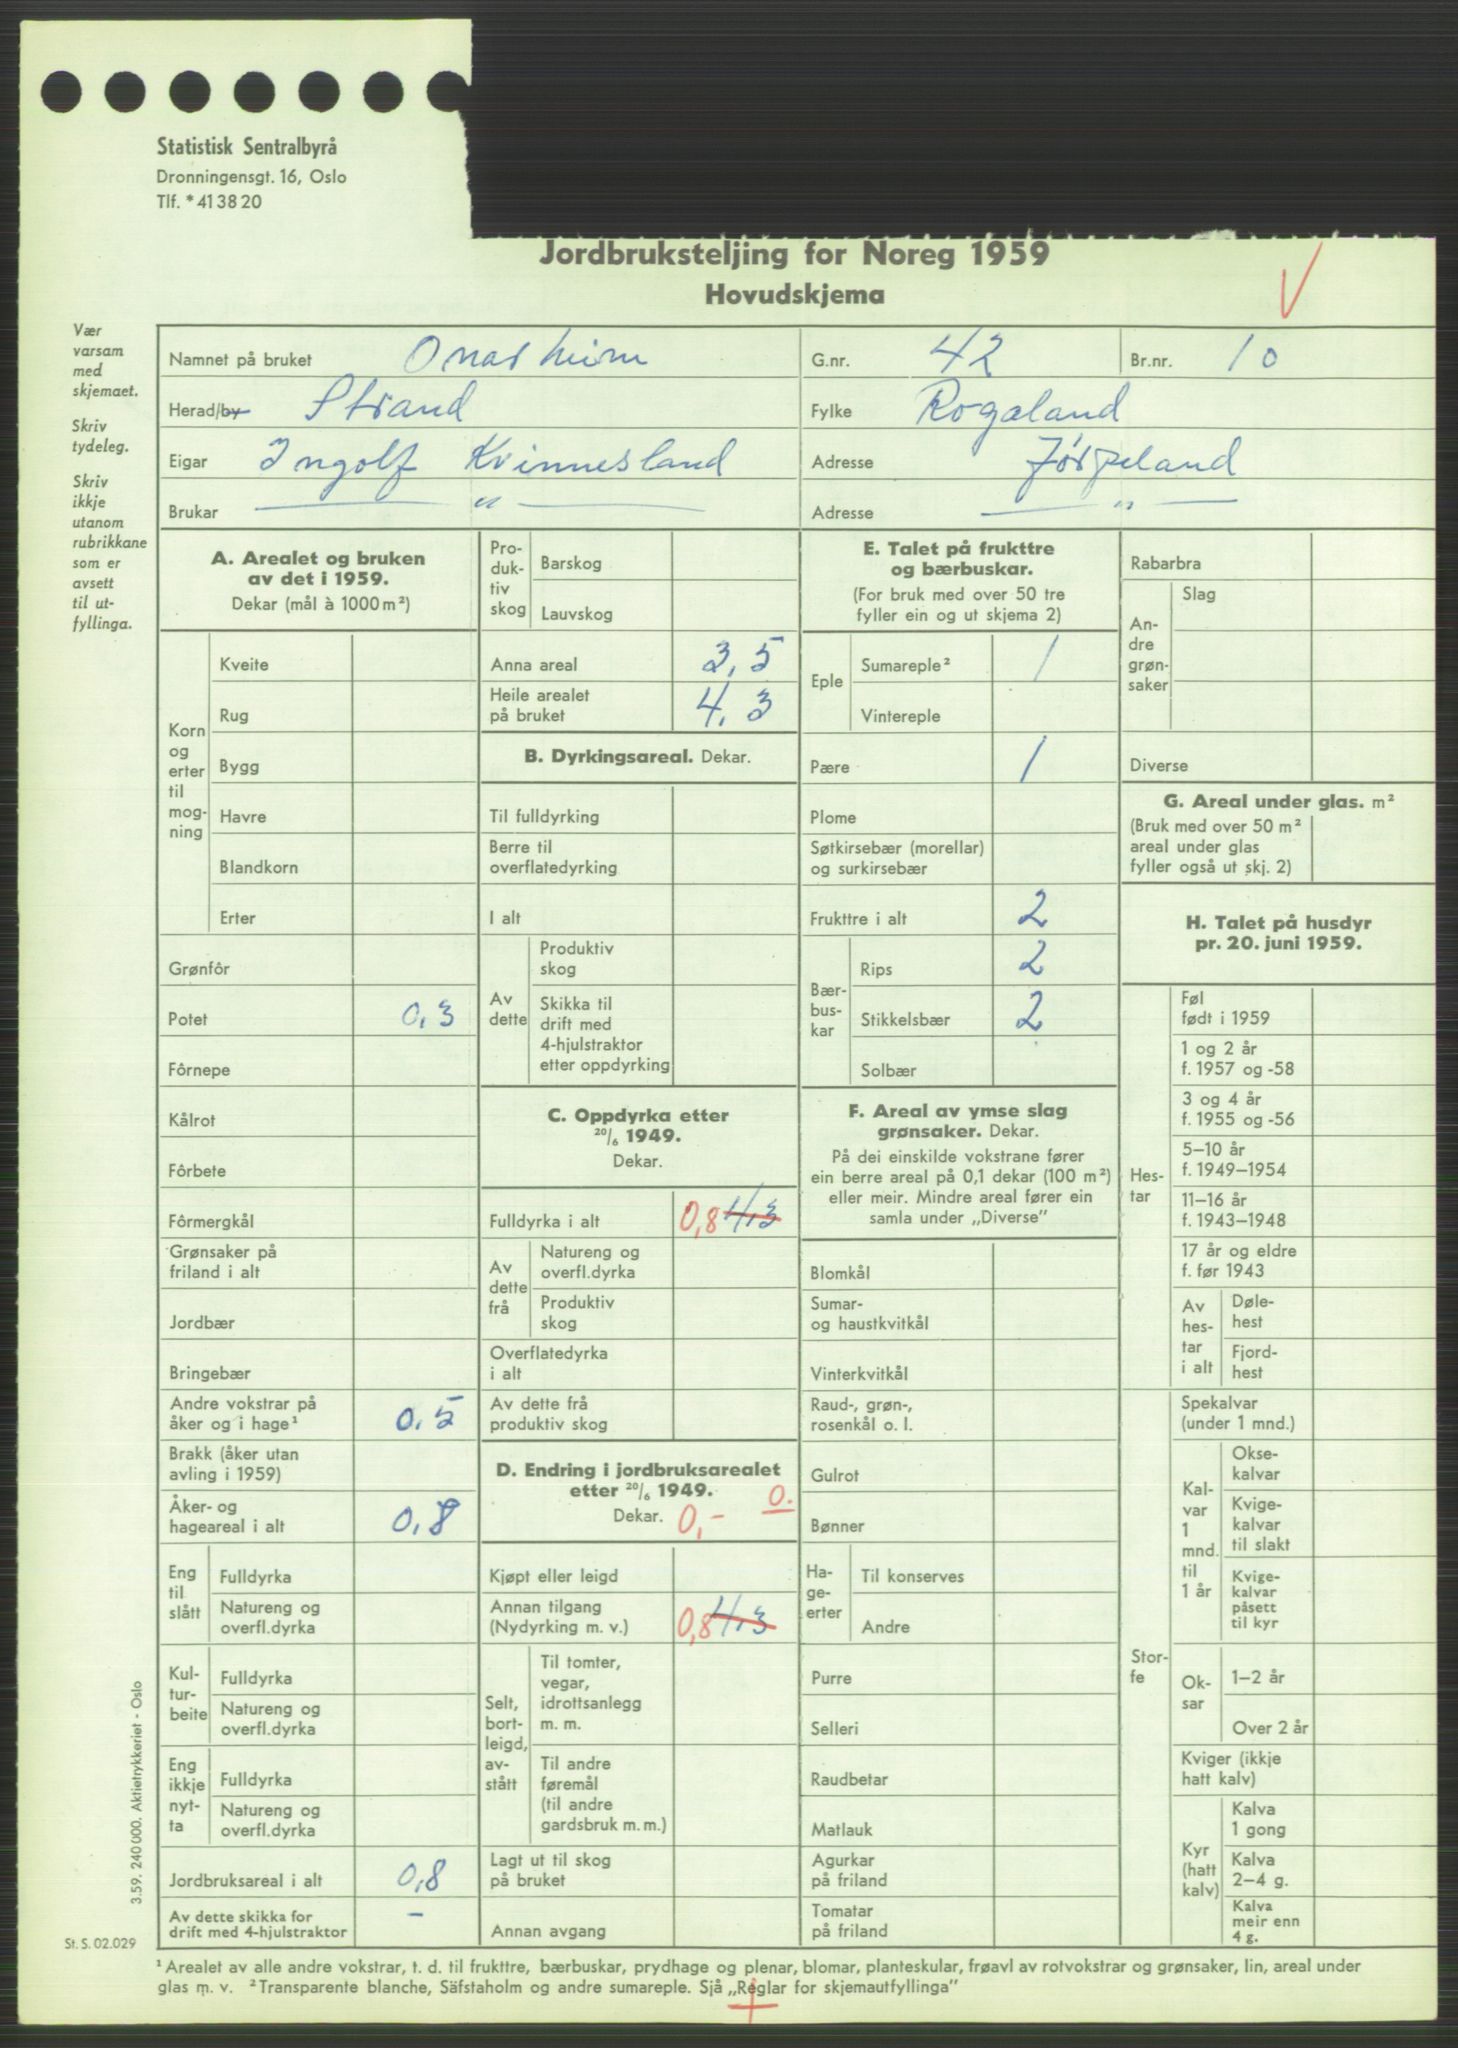 Statistisk Sentralbyrå
Dronningensgt. 16, Oslo
Tlf. * 41 38 20
Jordbruksteljing for Noreg 1959
Hovudskjema
Vær
varsam
med
skjemaet.
Skriv
tydeleg.
Skriv
ikkje
utanom
rubrikkane
som er
avsett
til ut-
fyllinga.
Namnet på bruket Onarheim G.nr. 42 Br.nr. 10
Herad/by Strand Fylke Rogaland
Eigar Ingolf Kvinnesland Adresse Jørpeland
Brukar — " — Adresse — " —
A. Arealet og bruken
av det i 1959.
Dekar (mål à 1000 m²)
Korn
og
erter
til
mog-
ning
Kveite
Rug
Bygg
Havre
Blandkorn
Erter
Grønfôr
Potet 0,3
Fôrnepe
Kålrot
Fôrbete
Fôrmergkål
Grønsaker på
friland i alt
Jordbær
Bringebær
Andre vokstrar på
åker og i hage¹ 0,5
Brakk (åker utan
avling i 1959)
Åker- og
hageareal i alt 0,8
Eng
til
slått
Fulldyrka
Natureng og
overfl.dyrka
Kul-
tur-
beite
Fulldyrka
Natureng og
overfl.dyrka
Eng
ikkje
nyt-
ta
Fulldyrka
Natureng og
overfl.dyrka
Jordbruksareal i alt 0,8
Av dette skikka for
drift med 4-hjulstraktor –
Pro-
duk-
tiv
skog
Barskog
Lauvskog
Anna areal 3,5
Heile arealet
på bruket 4,3
B. Dyrkingsareal. Dekar.
Til fulldyrking
Berre til
overflatedyrking
I alt
Av
dette
Produktiv
skog
Skikka til
drift med
4-hjulstraktor
etter oppdyrking
C. Oppdyrka etter
20/6 1949.
Dekar.
Fulldyrka i alt 0,8 4,3
Av
dette
frå
Natureng og
overfl.dyrka
Produktiv
skog
Overflatedyrka
i alt
Av dette frå
produktiv skog
D. Endring i jordbruksarealet
etter 20/6 1949. 0.
Dekar. 0,-
Kjøpt eller leigd
Annan tilgang
(Nydyrking m. v.) 0,8 4,3
Selt,
bort-
leigd,
av-
stått
Til tomter,
vegar,
idrottsanlegg
m. m.
Til andre
føremål
(til andre
gardsbruk m. m.)
Lagt ut til skog
på bruket
Annan avgang
E. Talet på frukttre
og bærbuskar.
(For bruk med over 50 tre
fyller ein og ut skjema 2)
Eple
Sumareple² 1
Vintereple
Pære 1
Plome
Søtkirsebær (morellar)
og surkirsebær
Frukttre i alt 2
Bær-
bus-
kar
Rips 2
Stikkelsbær 2
Solbær
F. Areal av ymse slag
grønsaker. Dekar.
På dei einskilde vokstrane fører
ein berre areal på 0,1 dekar (100 m²)
eller meir. Mindre areal fører ein
samla under „Diverse”
Blomkål
Sumar-
og haustkvitkål
Vinterkvitkål
Raud-, grøn-,
rosenkål o. l.
Gulrot
Bønner
Ha-
ge-
erter
Til konserves
Andre
Purre
Selleri
Raudbetar
Matlauk
Agurkar
på friland
Tomatar
på friland
Rabarbra
An-
dre
grøn-
saker
Slag
Diverse
G. Areal under glas. m²
(Bruk med over 50 m²
areal under glas
fyller også ut skj. 2)
H. Talet på husdyr
pr. 20. juni 1959.
Hes-
tar
Føl
født i 1959
1 og 2 år
f. 1957 og -58
3 og 4 år
f. 1955 og -56
5–10 år
f. 1949–1954
11–16 år
f. 1943–1948
17 år og eldre
f. før 1943
Av
hes-
tar
i alt
Døle-
hest
Fjord-
hest
Stor-
fe
Spekalvar
(under 1 mnd.)
Kal-
var
1
mnd.
til
1 år
Okse-
kalvar
Kvige-
kalvar
til slakt
Kvige-
kalvar
påsett
til kyr
Ok-
sar
1–2 år
Over 2 år
Kviger (ikkje
hatt kalv)
Kyr
(hatt
kalv)
Kalva
1 gong
Kalva
2–4 g.
Kalva
meir enn
4 g.
3.59. 240 000. Aktietrykkeriet - Oslo
St. S. 02.029
¹ Arealet av alle andre vokstrar, t. d. til frukttre, bærbuskar, prydhage og plenar, blomar, planteskular, frøavl av rotvokstrar og grønsaker, lin, areal under
glas m. v. ² Transparente blanche, Säfstaholm og andre sumareple. Sjå „Reglar for skjemautfyllinga”